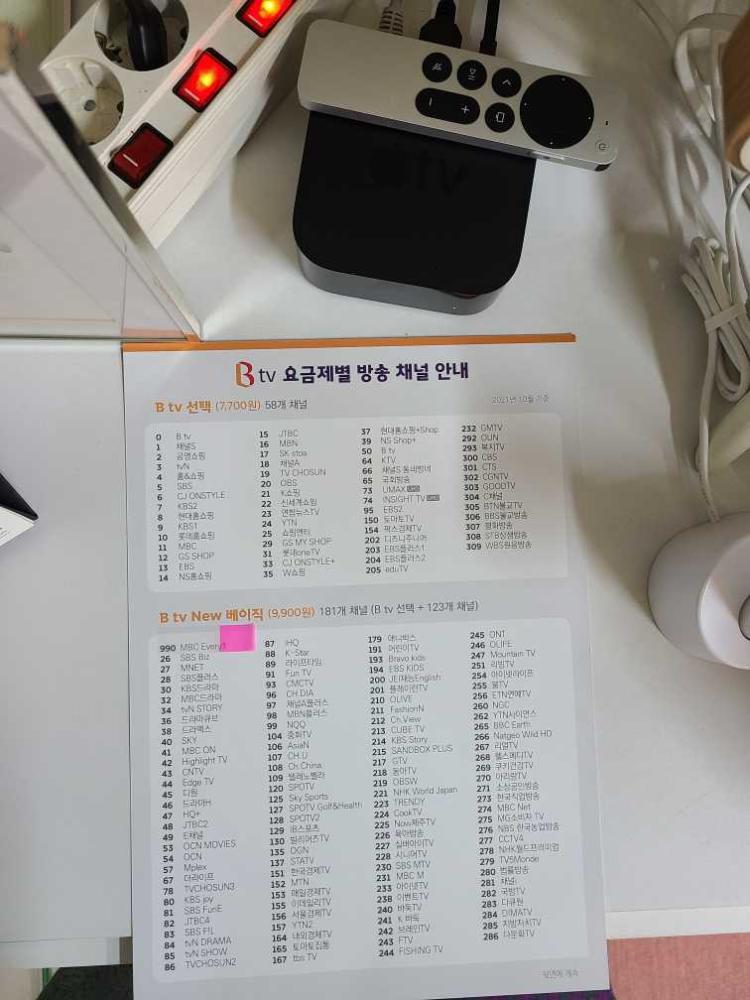 tv
B tv 요금제별 방송 채널 안내
B tv 선택 (7,700원) 58개 채널
2021년 10월 기준
0 B tv
1 채널S
2 공영쇼핑
3 tvN
4 홈&쇼핑
5 SBS
6 CJ ONSTYLE
7 KBS2
8 현대홈쇼핑
9 KBS1
10 롯데홈쇼핑
11 MBC
12 GS SHOP
13 EBS
14 NS홈쇼핑
15 JTBC
16 MBN
17 SK stoa
18 채널A
19 TV CHOSUN
20 OBS
21 K쇼핑
22 신세계쇼핑
23 연합뉴스TV
24 YTN
25 쇼핑엔티
29 GS MY SHOP
31 롯데oneTV
33 CJ ONSTYLE+
35 W쇼핑
37 현대홈쇼핑+Shop
39 NS Shop+
50 B tv
64 KTV
66 채널S 동네방네
65 국회방송
73 UMAX UHD
74 INSIGHT TV UHD
95 EBS2
150 토마토TV
154 팍스경제TV
202 디즈니주니어
203 EBS플러스1
204 EBS플러스2
205 eduTV
232 GMTV
292 OUN
293 복지TV
300 CBS
301 CTS
302 CGNTV
303 GOODTV
304 C채널
305 BTN불교TV
306 BBS불교방송
307 평화방송
308 STB상생방송
309 WBS원음방송
B tv New 베이직 (9,900원) 181개 채널 (B tv 선택 + 123개 채널)
990 MBC Every1
26 SBS Biz
27 MNET
28 SBS플러스
30 KBS드라마
32 MBC드라마
34 tvN STORY
36 드라마큐브
38 드라맥스
40 SKY
41 MBC ON
42 Highlight TV
43 CNTV
44 Edge TV
45 디원
46 드라마H
47 HQ+
48 JTBC2
49 E채널
53 OCN MOVIES
54 OCN
57 Mplex
67 더라이프
78 TVCHOSUN3
80 KBS joy
81 SBS FunE
82 JTBC4
83 SBS F!L
84 tvN DRAMA
85 tvN SHOW
86 TVCHOSUN2
87 IHQ
88 K-Star
89 라이프타임
91 Fun TV
93 CMCTV
96 CH.DIA
97 채널A플러스
98 MBN플러스
99 NQQ
104 중화TV
106 AsiaN
107 CH.U
108 Ch.China
109 텔레노벨라
120 SPOTV
125 Sky Sports
127 SPOTV Golf&Health
128 SPOTV2
129 IB스포츠
130 빌리어즈TV
135 OGN
137 STATV
151 한국경제TV
152 MTN
153 매일경제TV
155 이데일리TV
156 서울경제TV
157 YTN2
164 내외경제TV
165 토마토집통
167 tbs TV
179 애니박스
191 어린이TV
193 Bravo kids
194 EBS KIDS
200 JEI재능English
201 플레이런TV
210 OLIVE
211 FashionN
212 Ch.View
213 CUBE TV
214 KBS Story
215 SANDBOX PLUS
217 GTV
218 동아TV
219 OBSW
221 NHK World Japan
223 TRENDY
224 CookTV
225 Now제주TV
226 육아방송
227 실버아이TV
228 시니어TV
230 SBS MTV
231 MBC M
233 아이넷TV
238 이벤트TV
240 바둑TV
241 K 바둑
242 브레인TV
243 FTV
244 FISHING TV
245 ONT
246 OLIFE
247 Mountain TV
251 리빙TV
254 아이넷라이프
255 폴TV
256 ETN연예TV
260 NGC
262 YTN사이언스
265 BBC Earth
266 Natgeo Wild HD
267 리얼TV
268 헬스메디TV
269 쿠키건강TV
270 아리랑TV
271 소상공인방송
273 한국직업방송
274 MBC Net
275 MG소비자 TV
276 NBS 한국농업방송
277 CCTV4
278 NHK월드프리미엄
279 TV5Monde
280 법률방송
281 채널i
282 국방TV
283 다큐원
284 DIMATV
285 지방자치TV
286 다문화TV
뒷면에 계속